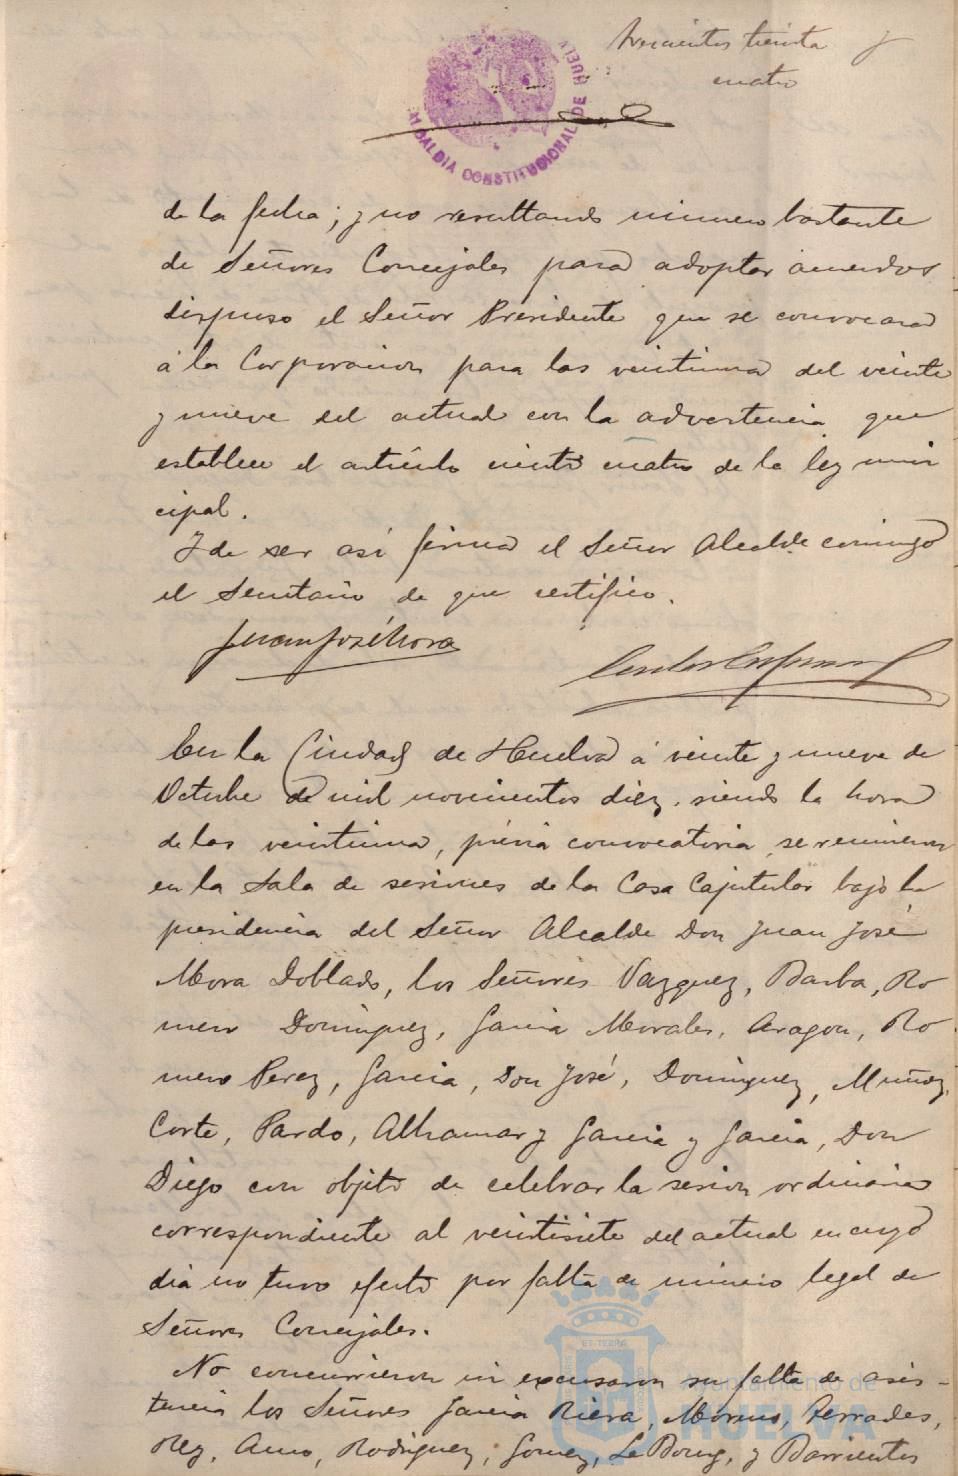 Trescientos treinta y
cuatro
ALCALDÍA CONSTITUCIONAL DE HUELVA
de la fecha; y no resultando número bastante
de Señores Concejales para adoptar acuerdos
dispuso el Señor Presidente que se convocara
á la Corporacion para las veintiuna del veinte
y nueve del actual con la advertencia que
establece el artículo ciento cuatro de la ley muni
cipal.
Y de ser así firma el Señor Alcalde conmigo
el Secretario de que certifico.
Juan José Mora
En la Ciudad de Huelva á veinte y nueve de
Octubre de mil novecientos diez, siendo la hora
de las veintiuna, prévia convocatoria, se reunieron
en la Sala de sesiones de la Casa Capitular bajo la
presidencia del Señor Alcalde Don Juan José
Mora Doblado, los Señores Vazquez, Barba, Ro
mero Dominguez, Garcia Morales, Aragon, Ro
mero Perez, Garcia, Don José, Dominguez, Muñoz,
Corte, Pardo, Alhamar y Garcia y Garcia, Don
Diego con objeto de celebrar la sesion ordinaria
correspondiente al veintisiete del actual en cuyo
dia no tuvo efecto por falta de número legal de
Señores Concejales.
No concurrieron ni excusaron su falta de asis-
tencia los Señores Garcia Riera, Moreno, Terrades,
Rey, Amo, Rodriguez, Gomez, Le Bourg, y Barrientos
Ayuntamiento de
HUELVA